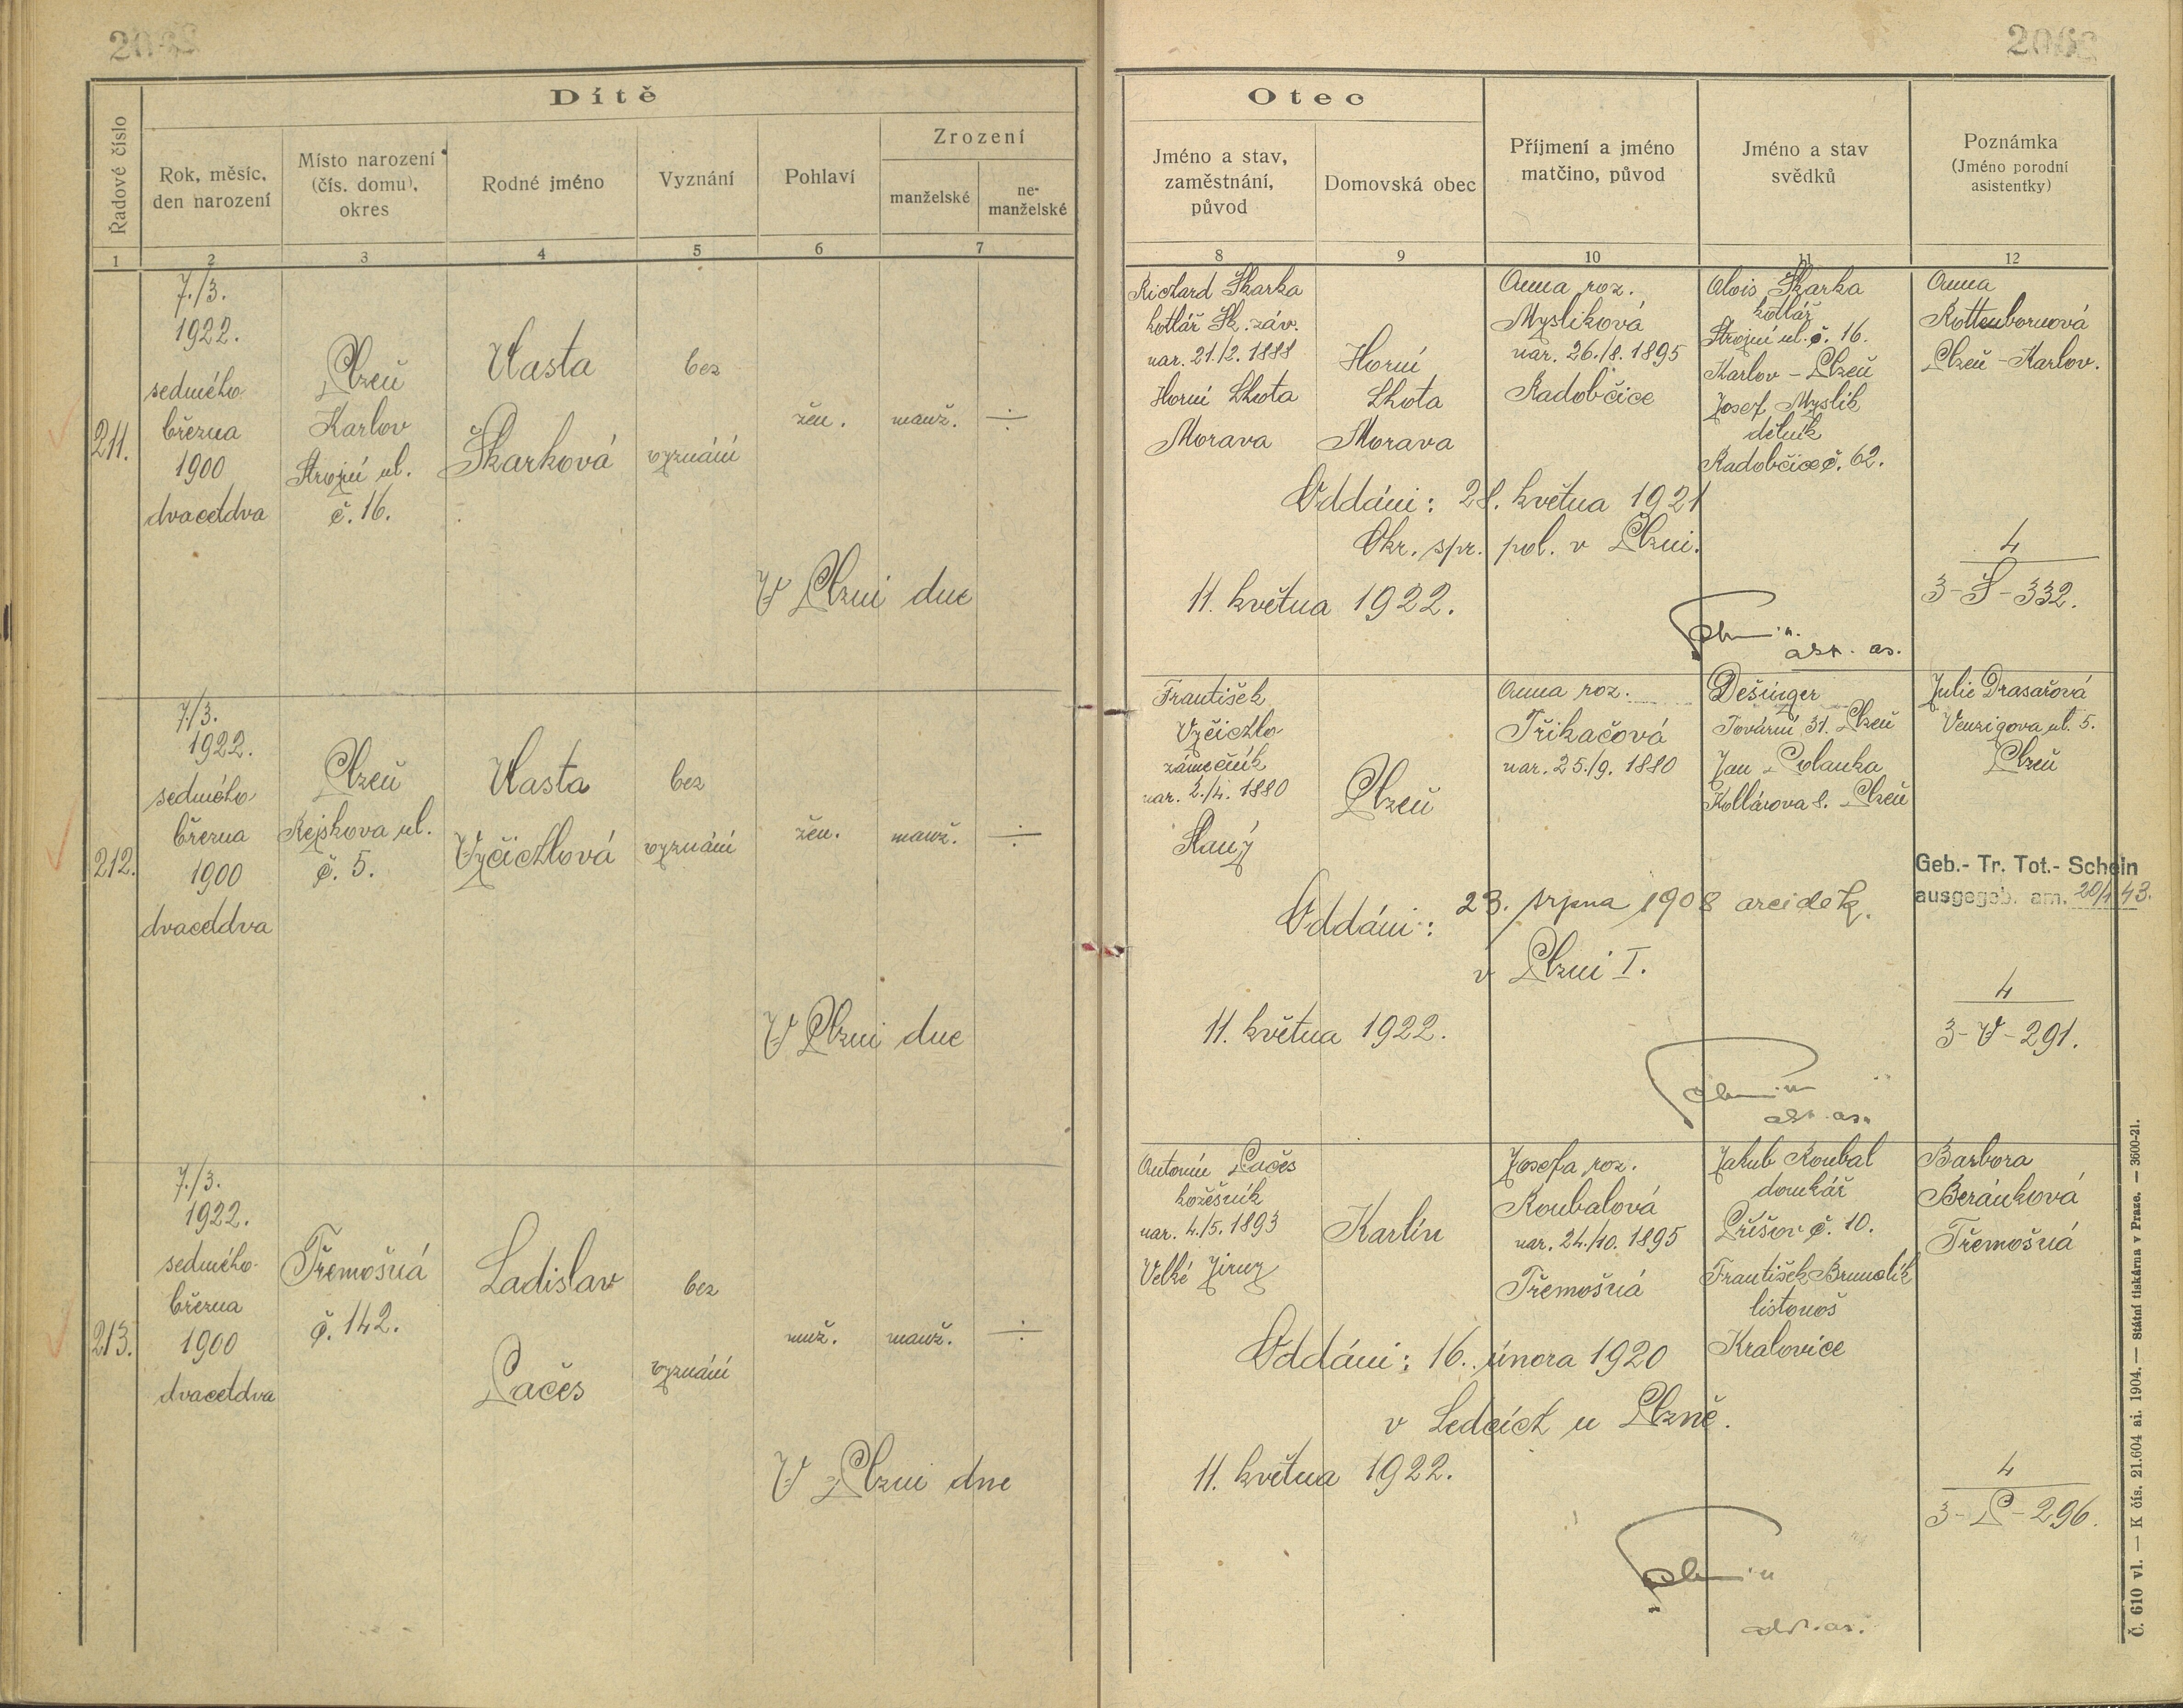 Dítě
Řadové číslo
Rok, měsíc,
den narození
Místo narození
(čís. domu),
okres
Rodné jméno
Vyznání
Pohlaví
Zrození
manželské
ne-
manželské
1 2 3 4 5 6 7
Otec
Jméno a stav,
zaměstnání,
původ
Domovská obec
Příjmení a jméno
matčino, původ
Jméno a stav
svědků
Poznámka
(Jméno porodní
asistentky)
8 9 10 11 12
211.
7./3.
1922.
sedmého
března
1900
dvacetdva
Plzeň
Karlov
Strojní ul.
č. 16.
Vlasta
Škarková
bez
vyznání
žen.
manž.
÷
Richard Škarka
kotlář Šk. záv.
nar. 21./2. 1888
Horní Lhota
Morava
Horní
Lhota
Morava
Anna roz.
Myslíková
nar. 26./8. 1895
Radobčice
Alois Škarka
kotlář
Strojní ul. č. 16.
Karlov - Plzeň
Josef Myslík
dělník
Radobčice č. 62.
Anna
Rottenbornová
Plzeň - Karlov.
Oddáni: 28. května 1921
Okr. spr. pol. v Plzni.
V Plzni dne 11. května 1922.
4
3-Š-332.
212.
7./3.
1922.
sedmého
března
1900
dvacetdva
Plzeň
Rejskova ul.
č. 5.
Vlasta
Vyčichlová
bez
vyznání
žen.
manž.
÷
František
Vyčichlo
zámečník
nar. 2./4. 1880
Slaný
Plzeň
Anna roz.
Třikačová
nar. 25./9. 1880
Dešinger
Tovární 31. Plzeň
Jan Polanka
Kollárova 8. Plzeň
Julie Drasařová
Venzigova ul. 5.
Plzeň
Geb.- Tr. Tot.- Schein
ausgegeb. am.
Oddáni: 23. srpna 1908 arciděk.
v Plzni I.
V Plzni dne 11. května 1922.
4
3-V-291.
213.
7./3.
1922.
sedmého
března
1900
dvacetdva
Třemošná
č. 142.
Ladislav
Pačes
bez
vyznání
muž.
manž.
÷
Antonín Pačes
kožešník
nar. 4./5. 1893
Velké Jirny
Karlín
Josefa roz.
Koubalová
nar. 24./10. 1895
Třemošná
Jakub Koubal
domkář
Příšov č. 10.
František
listonoš
Kralovice
Barbora
Beránková
Třemošná
Oddáni: 16. února 1920
v Ledcích u Plzně.
V Plzni dne 11. května 1922.
4
3-P-296.
Č. 610 vl. — K čís. 21.604 ai. 1904. — Státní tiskárna v Praze. — 3600-21.